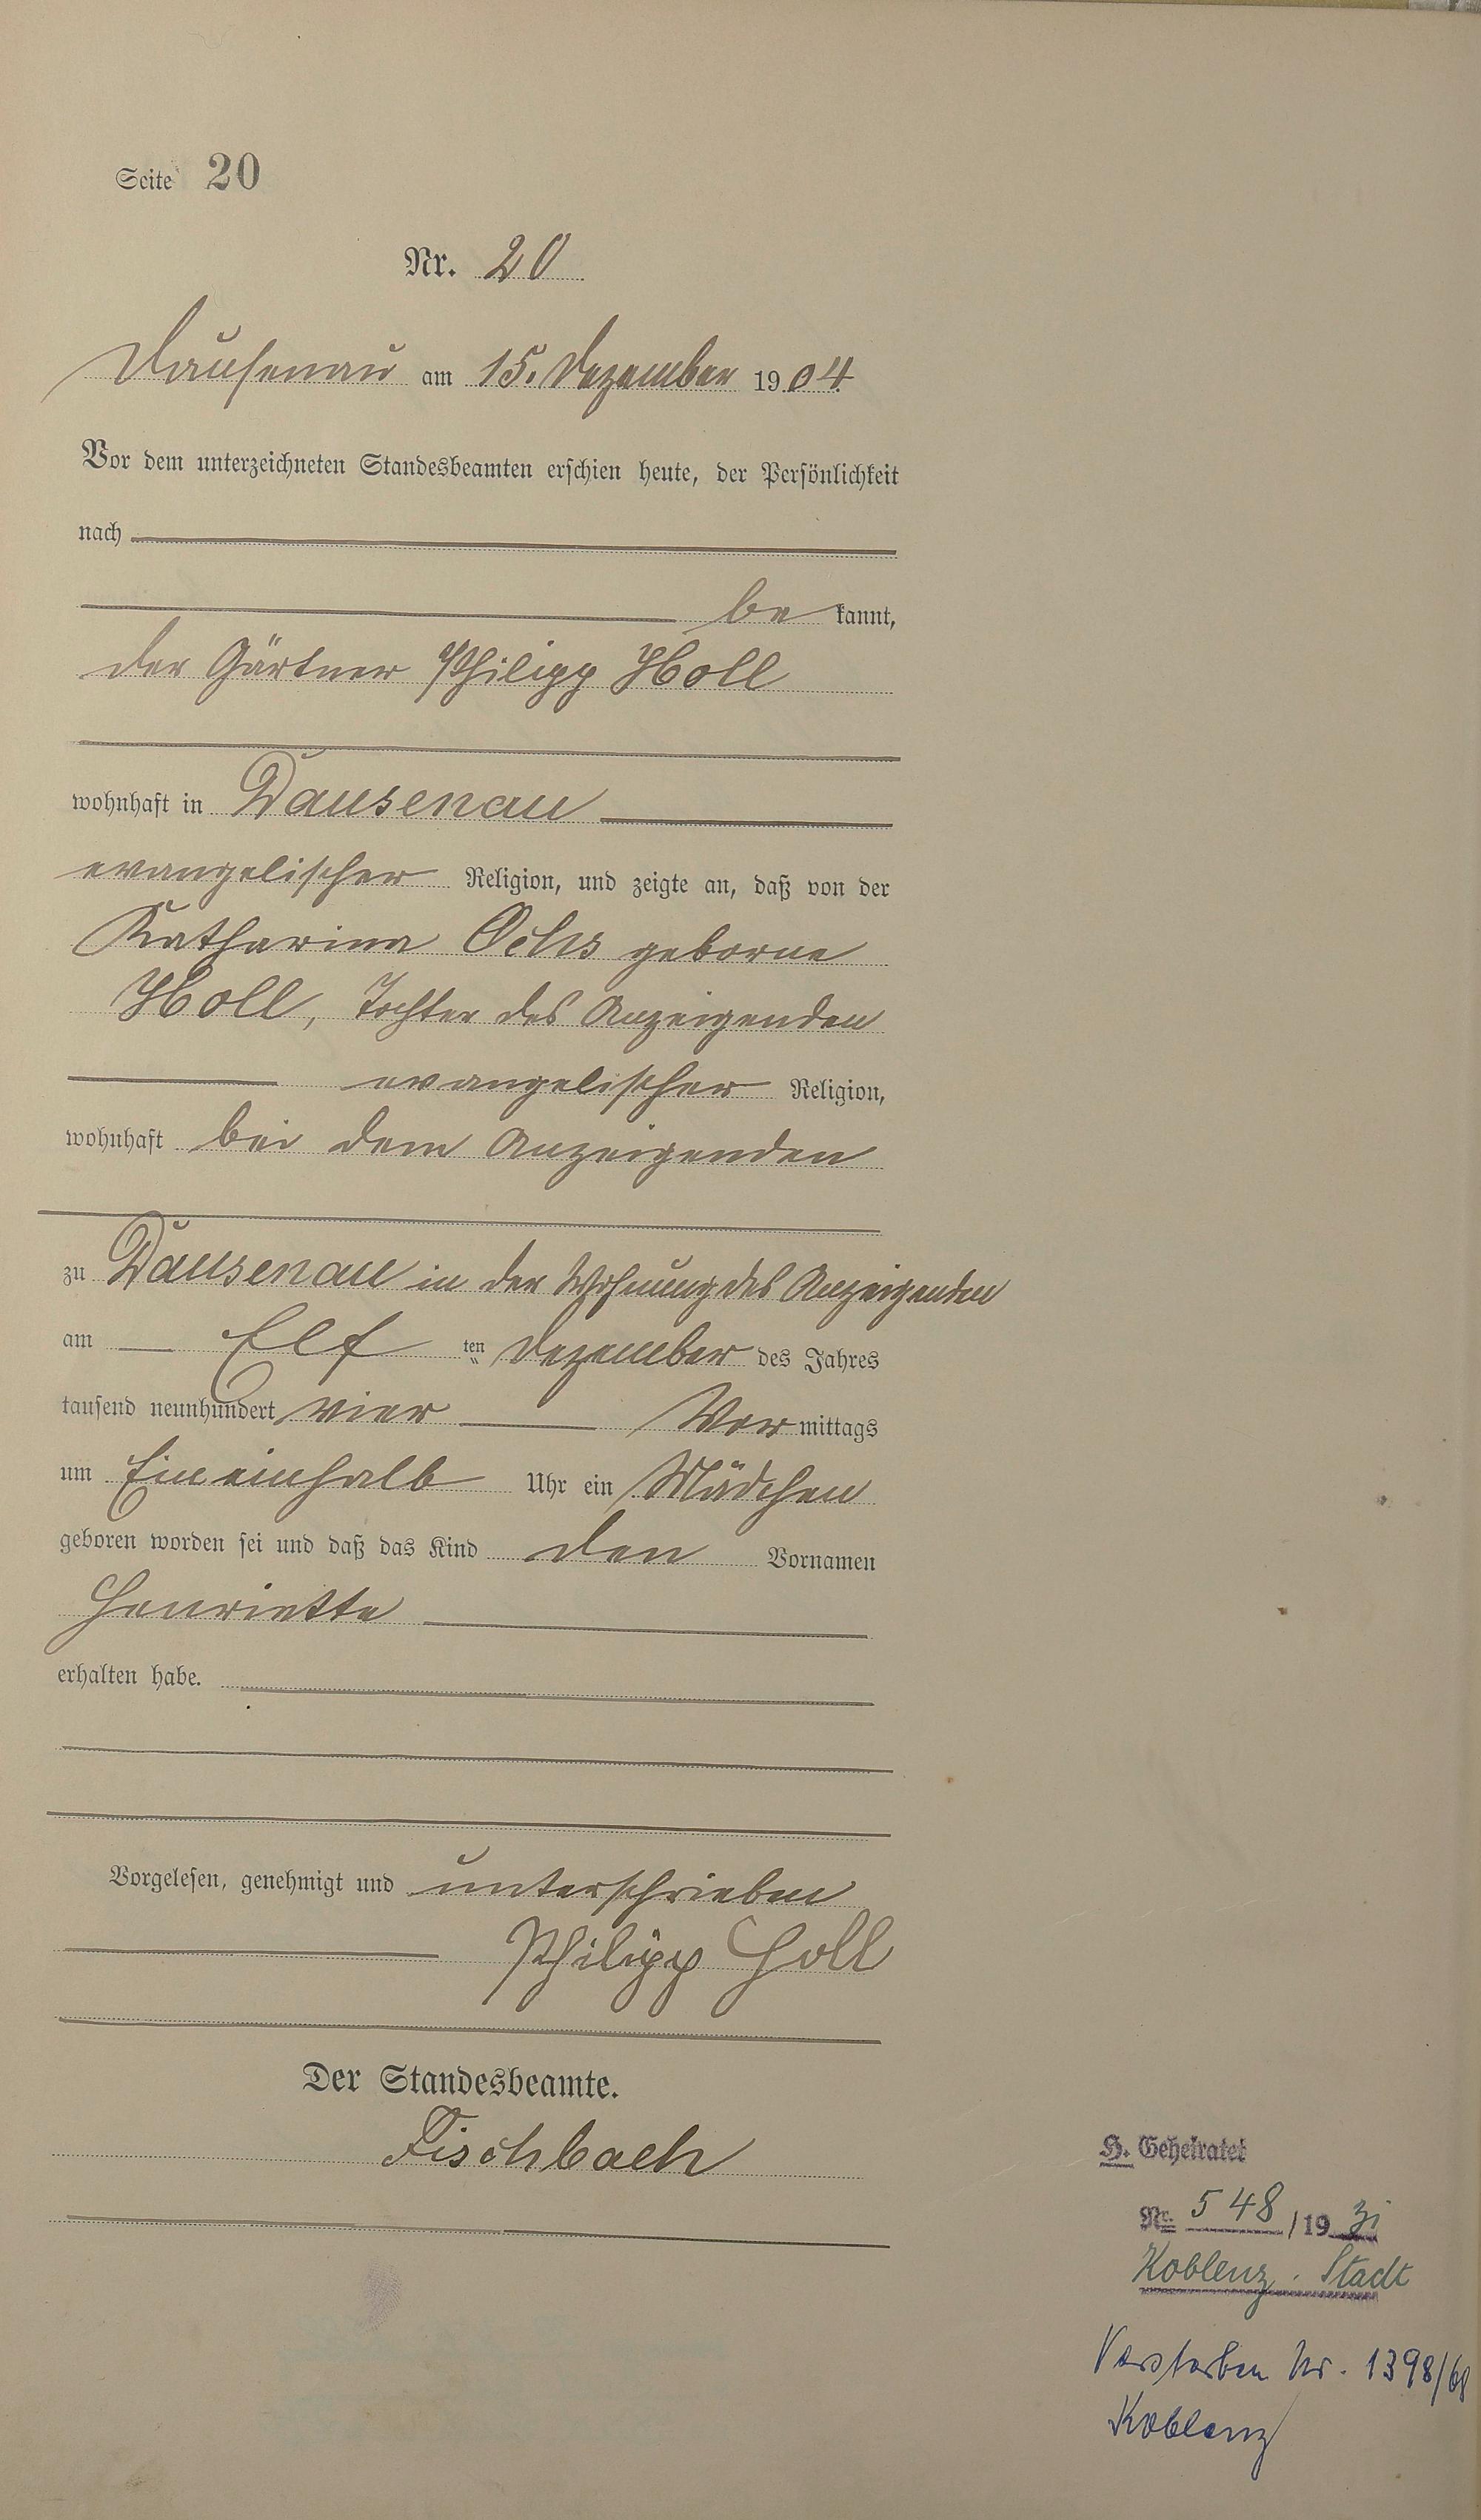 Seite 20
Nr. 20
Dausenau am 15. Dezember 1904
Vor dem unterzeichneten Standesbeamten erschien heute, der Persönlichkeit
nach
be kannt,
der Gärtner Philipp Holl
wohnhaft in Dausenau
evangelischer Religion, und zeigte an, daß von der
Katharina Ochs geborne
Holl, Tochter des Anzeigenden
evangelischer Religion,
wohnhaft bei dem Anzeigenden
zu Dausenau in der Wohnung des Anzeigenden
am Elf ten Dezember des Jahres
tausend neunhundert vier Vor mittags
um Eineinhalb Uhr ein Mädchen
geboren worden sei und daß das Kind den Vornamen
Henriette
erhalten habe.
Vorgelesen, genehmigt und unterschrieben
Philipp Holl
Der Standesbeamte.
Fischbach
H. Geheiratet
Nr. 548/1931
Koblenz-Stadt
Verstorben Nr. 1398/68
Koblenz